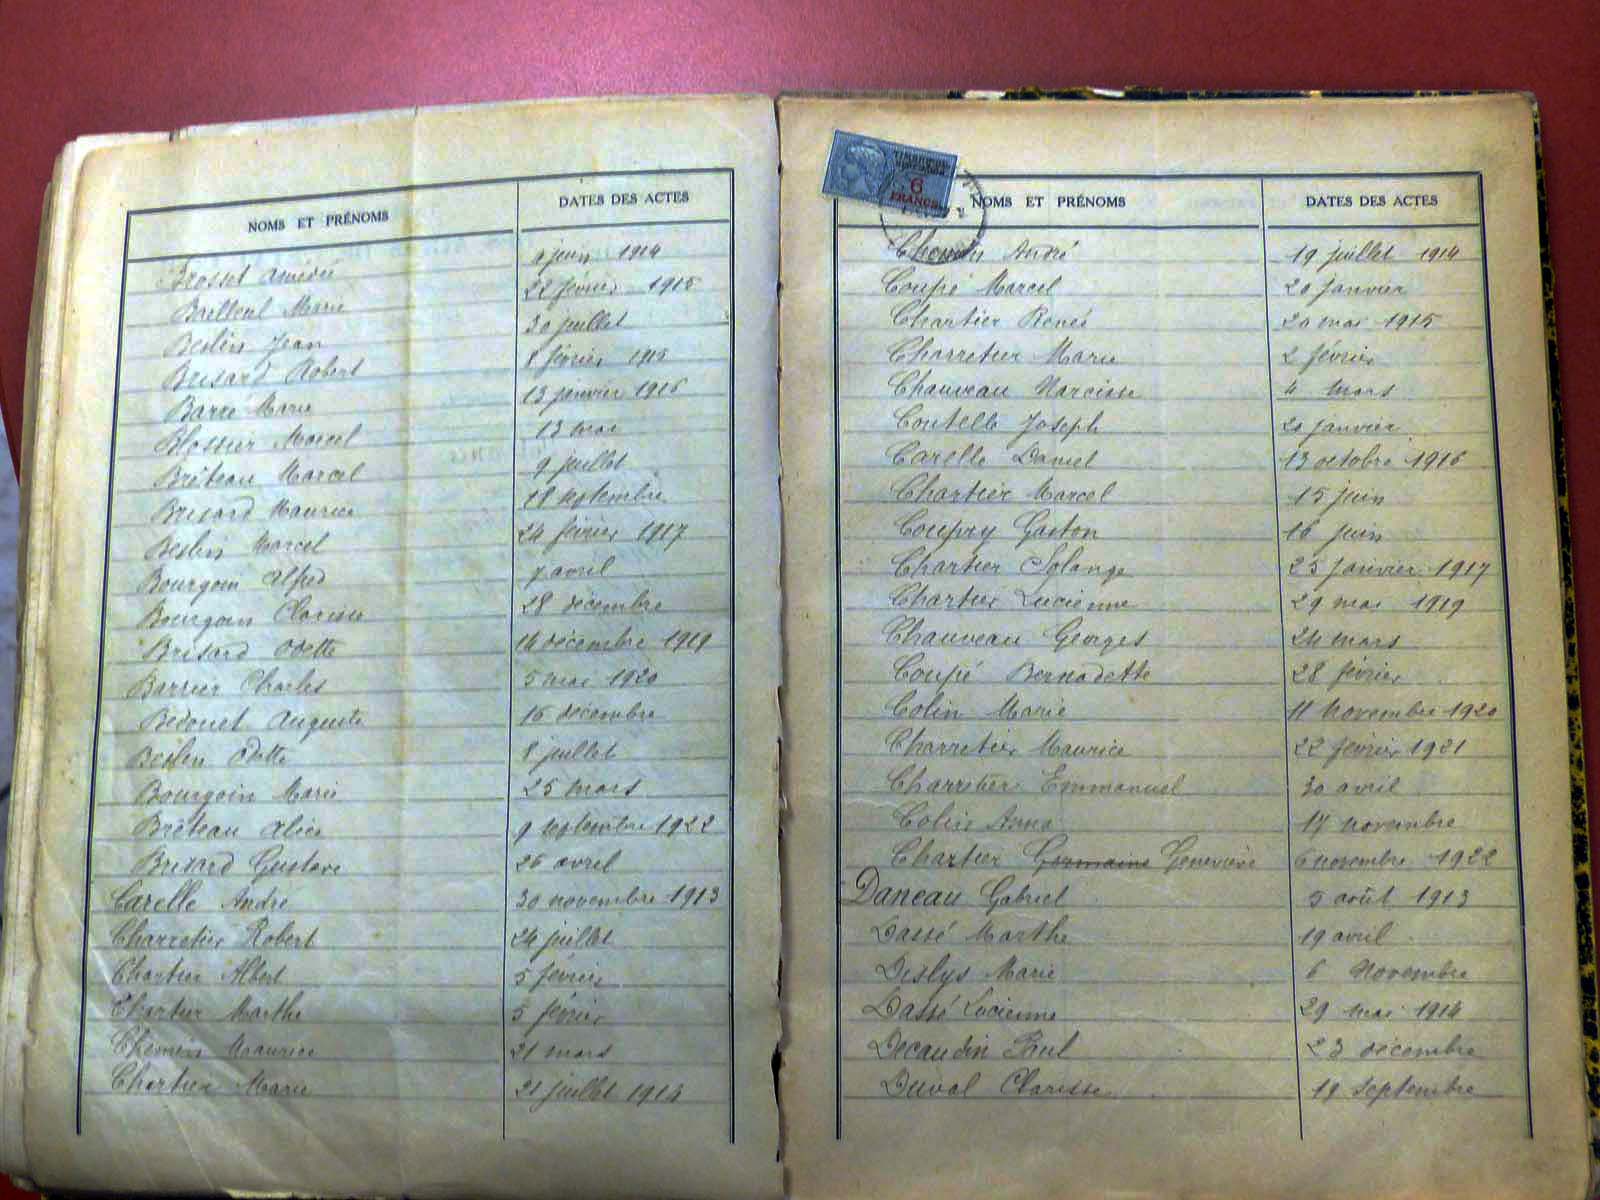 NOMS ET PRÉNOMS DATES DES ACTES
Brosset Amédée juin 1914
Bailleul Marie 22 février 1915
Beslin Jean 30 juillet
Brisard Robert 8 février 1915
Barré Marie 13 janvier 1916
Blossier Marcel 13 mai
Brêteau Marcel 9 juillet
Brisard Maurice 18 septembre
Beslin Marcel 24 février 1917
Bourgoin Alfred 7 avril
Bourgoin Clarisse 28 décembre
Brisard Odette 14 décembre 1919
Barrier Charles 5 mai 1920
Bedouet Auguste 16 décembre
Beslin Odette 8 juillet
Bourgoin Marie 25 mars
Brêteau Alice 9 septembre 1922
Brisard Gustave 26 avril
Carelle André 30 novembre 1913
Charretier Robert 24 juillet
Chartier Albert 5 février
Chartier Marthe 5 février
Chemin Maurice 21 mars
Chartier Marie 21 juillet 1914
6
FRANCS
NOMS ET PRÉNOMS DATES DES ACTES
Chemin André 19 juillet 1914
Coupé Marcel 20 janvier
Chartier Renée 20 mai 1915
Charretier Marie 2 février
Chauveau Narcisse 4 mars
Coutelle Joseph 20 janvier
Carelle Daniel 13 octobre 1916
Chartier Marcel 15 juin
Coupry Gaston 16 juin
Chartier Solange 25 janvier 1917
Chartier Lucienne 29 mai 1919
Chauveau Georges 24 mars
Coupé Bernadette 28 février
Colin Marie 11 Novembre 1920
Charretier Maurice 22 février 1921
Charretier Emmanuel 30 avril
Colin Anna 17 novembre
Chartier Germaine Geneviève 6 novembre 1922
Daneau Gabriel 5 août 1913
Dassé Marthe 19 avril
Deslys Marie 6 Novembre
Dassé Lucienne 29 mai 1914
Decaudin Paul 23 décembre
Duval Clarisse 19 Septembre